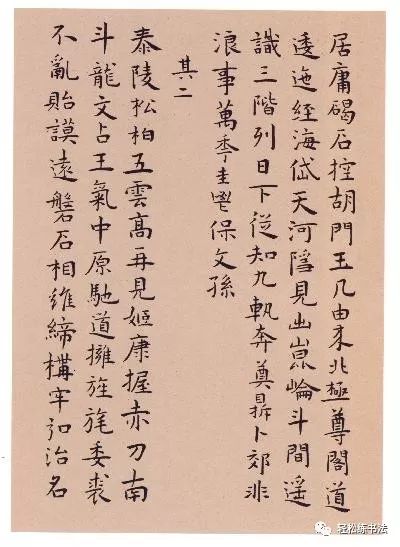 居庸碣石控胡門玉几由来北極尊閣道
逶迤經海岱天河隱見出崑崘斗間遥
識三階列日下從知九軌奔奠鼎卜郊非
浪事萬季圭鬯保文孫
其二
泰陵松柏五雲高再見姬康握赤刀南
斗龍文占王氣中原馳道擁旌旄委裘
不亂貽謨遠磐石相維締構牢弘治名
轻松练书法